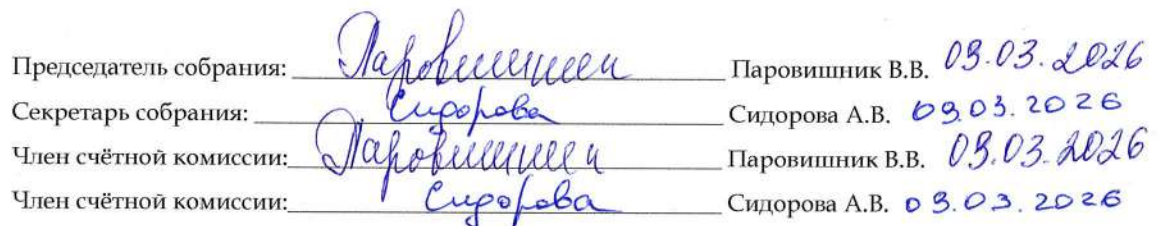 Председатель собрания: Паровишник Паровишник В.В. 09.03.2026
Секретарь собрания: Сидорова Сидорова А.В. 09.03.2026
Член счётной комиссии: Паровишник Паровишник В.В. 09.03.2026
Член счётной комиссии: Сидорова Сидорова А.В. 09.03.2026